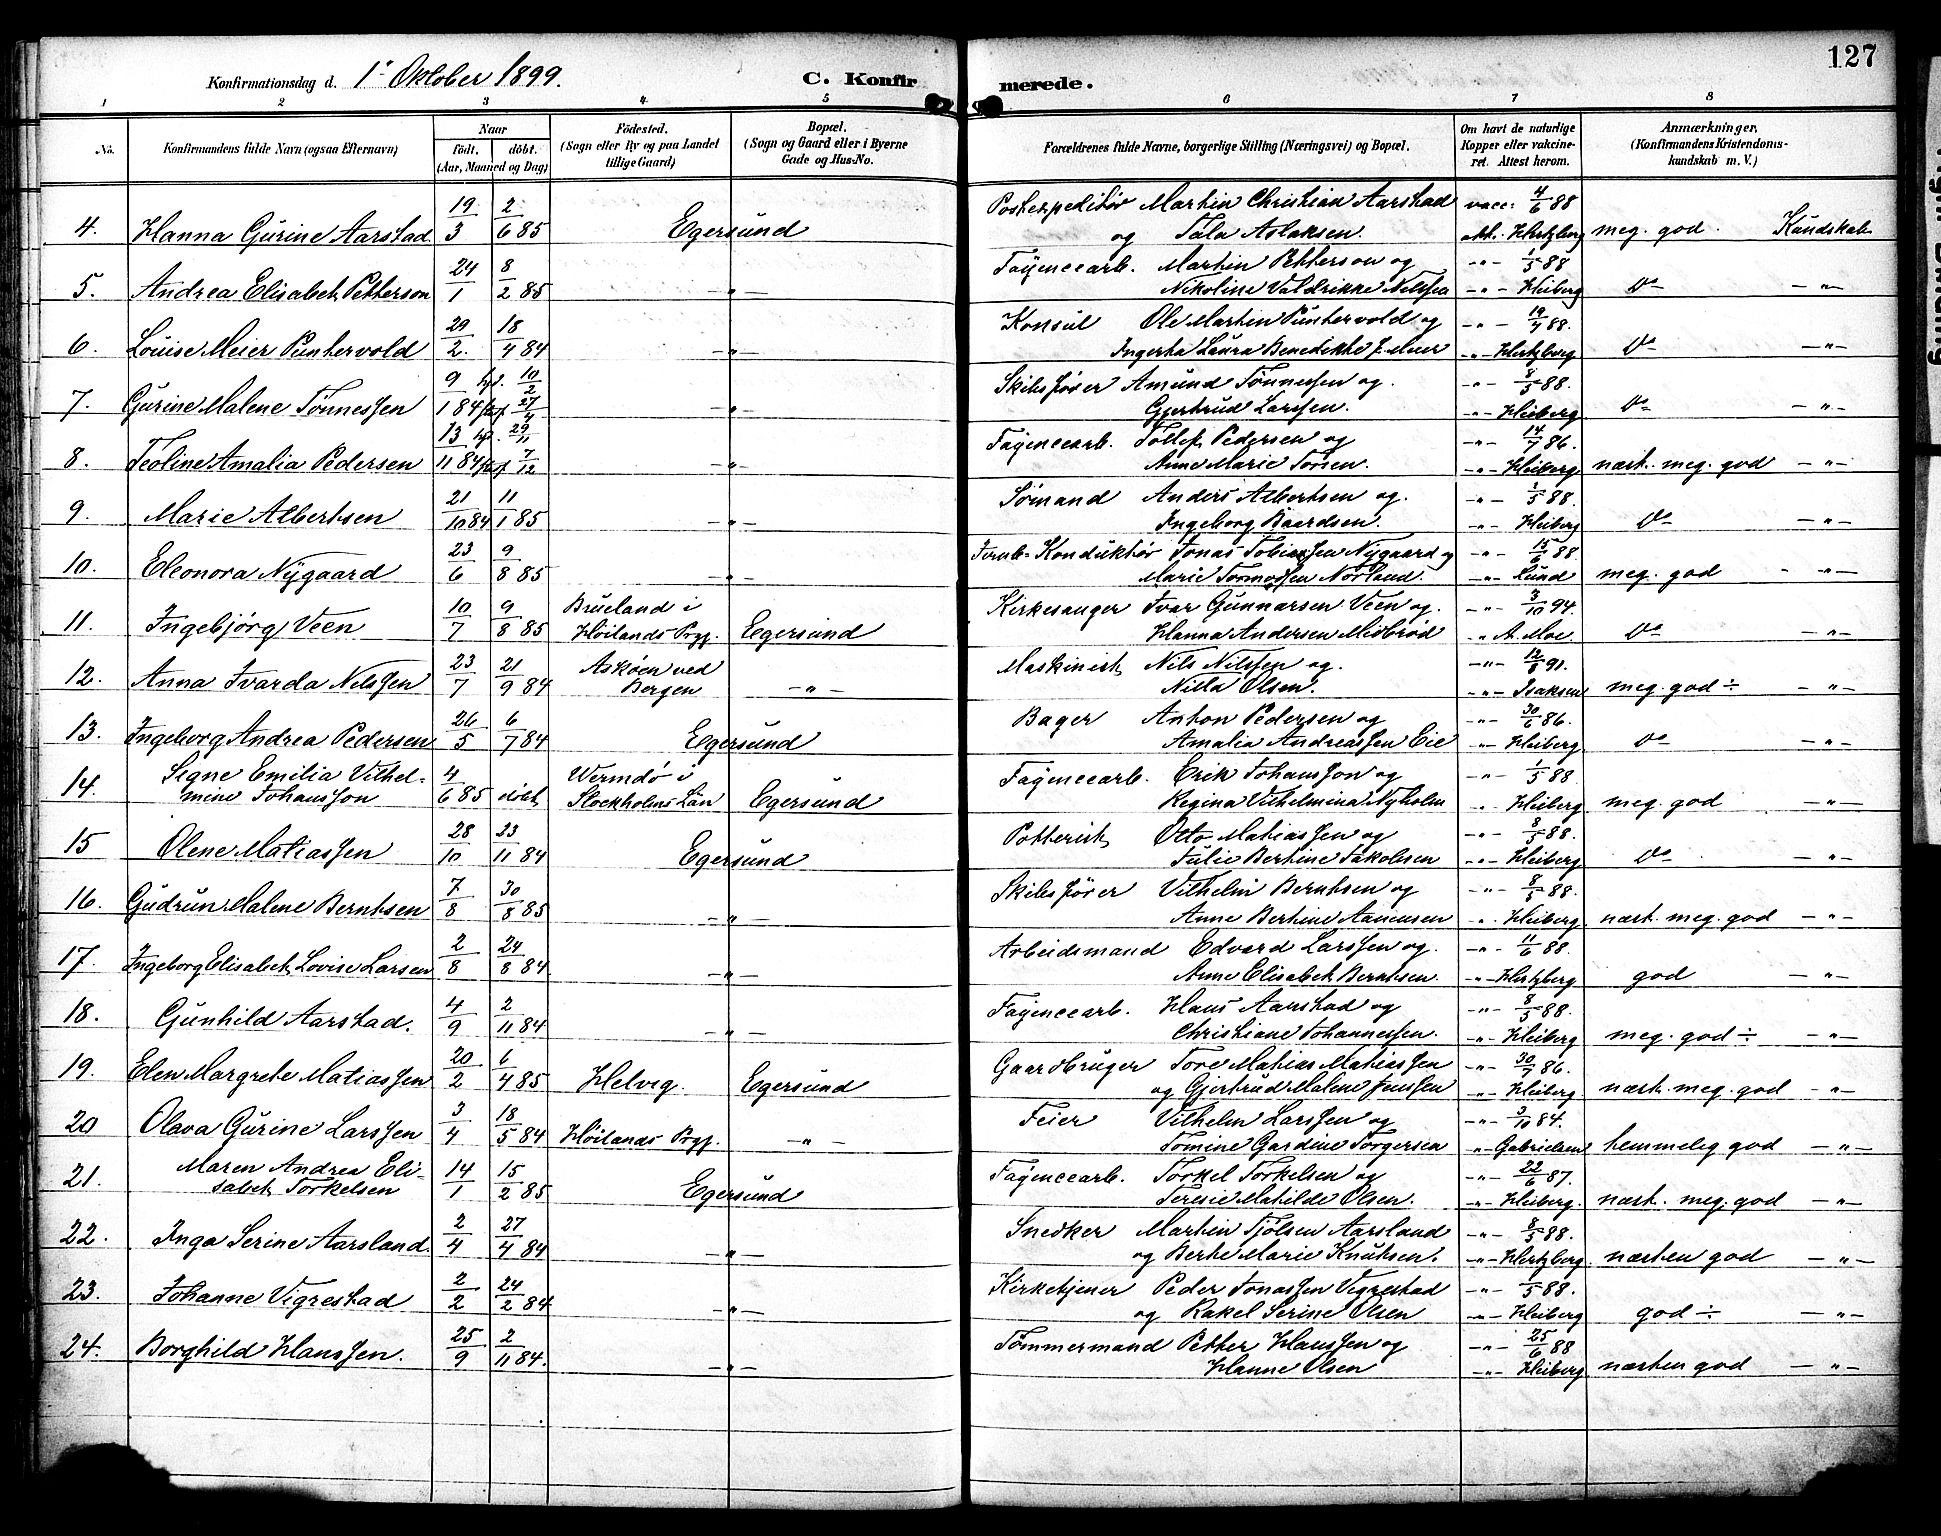 127
Konfirmationsdag d. 1ᵉ Oktober 1899. C. Konfir merede.
1 2 3 4 5 6 7 8
No. Konfirmandens fulde Navn (ogsaa Efternavn) Naar født. døbt. (Aar, Maaned og Dag) Fødested. (Sogn eller By og paa Landet tillige Gaard) Bopæl. (Sogn og Gaard eller i Byerne Gade og Hus-No. Forældrenes fulde Navne, borgerlige Stilling (Næringsvei) og Bopæl. Om havt de naturlige Kopper eller vakcineret. Attest herom. Anmærkninger, (Konfirmandens Kristendomskundskab m. V.)
19 2 Postexpeditør Martin Christian Aarstad vacc. 4/6 88
4. Hanna Gurine Aarstad 3 6 85 Egersund og Tala Aslaksen. att. Hertzberg meg. god. Kundskab
24 8 Fayencearb. Martin Petterson og -"- 1/5 88
5. Andrea Elisabet Petterson 1 2 85 -"- Nikoline Valdrikke Nilssen -"- Heiberg Do -"-
29 18 Konsul Ole Martin Puntervold og -"- 19/4 88.
6. Louise Meier Puntervold 2. 4 84 -"- Laura Benedikte f. Meier -"- Hertzberg Do -"-
9 hj. 10/2 Skibsfører Amund Tønnessen og -"- 8/5 88.
7. Gurine Malene Tønnessen 1 84 27/4 -"- Gjertrud Larssen. -"- Heiberg Do -"-
13 hj. 29/11 Fayencearb. Tollef Pedersen og -"- 14/7 86.
8. Teoline Amalia Pedersen 11 84 7/12 -"- Anne Marie Torsen. -"- Heiberg næst. meg. god -"-
21 11 Sømand Anders Albertsen og. -"- 1/5 88.
9. Marie Albertsen 10 84 1 85 -"- Ingeborg Baardsen. -"- Heiberg Do -"-
23 9 Jernb.- Konduktør Jonas Tobiassen Nygaard og -"- 15/6 88
10. Eleonora Nygaard 6 8 85 -"- Marie Tormodsen Nørland. -"- Lund meg. god -"-
10 9 Brueland i Kirkesanger Ivar Gunnarsen Veen og. -"- 3/10 94.
11. Ingebjørg Veen 7 8 85 Høilands Prgj. Egersund Hanna Andersen Midbrød -"- A. Moe. Do -"-
23 21 Askøen ved Maskinist Nils Nilssen og. -"- 12/5 91.
12. Anna Ivarda Nilssen 7 9 84 Bergen -"- Nilla Olsen. -"- Isaksen meg. god ÷ -"-
26 6 Bager Anton Pedersen og -"- 30/6 86.
13. Ingeborg Andrea Pedersen 5 7 84 Egersund Amalia Andreassen Eie -"- Heiberg Do -"-
Signe Emilia Vilhel- 4 Wermdø i Fayencearb. Erik Johansson og -"- 1/5 88.
14. mine Johansson 6 85 døbt Stockholms Län Egersund Regina Vilhelmina Nyholm -"- Heiberg meg. god -"-
28 23 Potterist Otto Matiassen og -"- 8/5 88.
15 Olene Matiassen 10 11 84 Egersund Julie Bertine Jakobsen -"- Heiberg Do -"-
7 30 Skibsfører Vilhelm Berntsen og -"- 8/5 88.
16. Gudrun Malene Berntsen 8 8 85 -"- Anne Bertine Aanensen -"- Heiberg næst. meg. god -"-
2 24 Arbeidsmand Edvard Larssen og. -"- 11/6 88.
17. Ingeborg Elisabet Lovise Larsen 8 8 84 -"- Anne Elisabet Berntsen. -"- Hertzberg god -"-
4 2 Fayencearb. Hans Aarstad og -"- 8/5 88.
18. Gunhild Aarstad. 9 11 84 -"- Christiane Johannessen. -"- Heiberg meg. god ÷ -"-
20 6 Gaardbruger Tore Matias Matiassen -"- 30/7 86.
19. Elen Margrete Matiassen 2 4 85 Helvig. Egersund og Gjertrud Malene Jenssen -"- Heiberg næst. meg. god -"-
3 18 Feier Vilhelm Larssen og -"- 3/10 84.
20 Olava Gurine Larssen 4 5 84 Høilands Prgj. -"- Tomine Gardine Torgersen -"- Gabrielsen temmelig god -"-
Maren Andrea Eli- 14 15 Fayencearb. Torkel Torkelsen og -"- 22/6 87.
21. sabet Torkelsen 1 2 85 Egersund Teresie Matilde Olsen. -"- Heiberg. næst. meg. god -"-
2 27 Snedker Martin Tjølsen Aarsland -"- 8/5 88.
22. Inga Serine Aarsland. 4 4 84 -"- og Berte Marie Knutsen. -"- Hertzberg næsten god -"-
2 24 Kirketjener Peder Jonassen Vigrestad -"- 1/5 88.
23. Johanne Vigrestad 2 2 84 -"- og Rakel Serine Olsen -"- Heiberg god ÷ -"-
25 2 Tømmermand Petter Hanssen og -"- 25/6 88
24. Borghild Hanssen. 9 11 84. -"- Hanne Olsen -"- Heiberg næsten god -"-